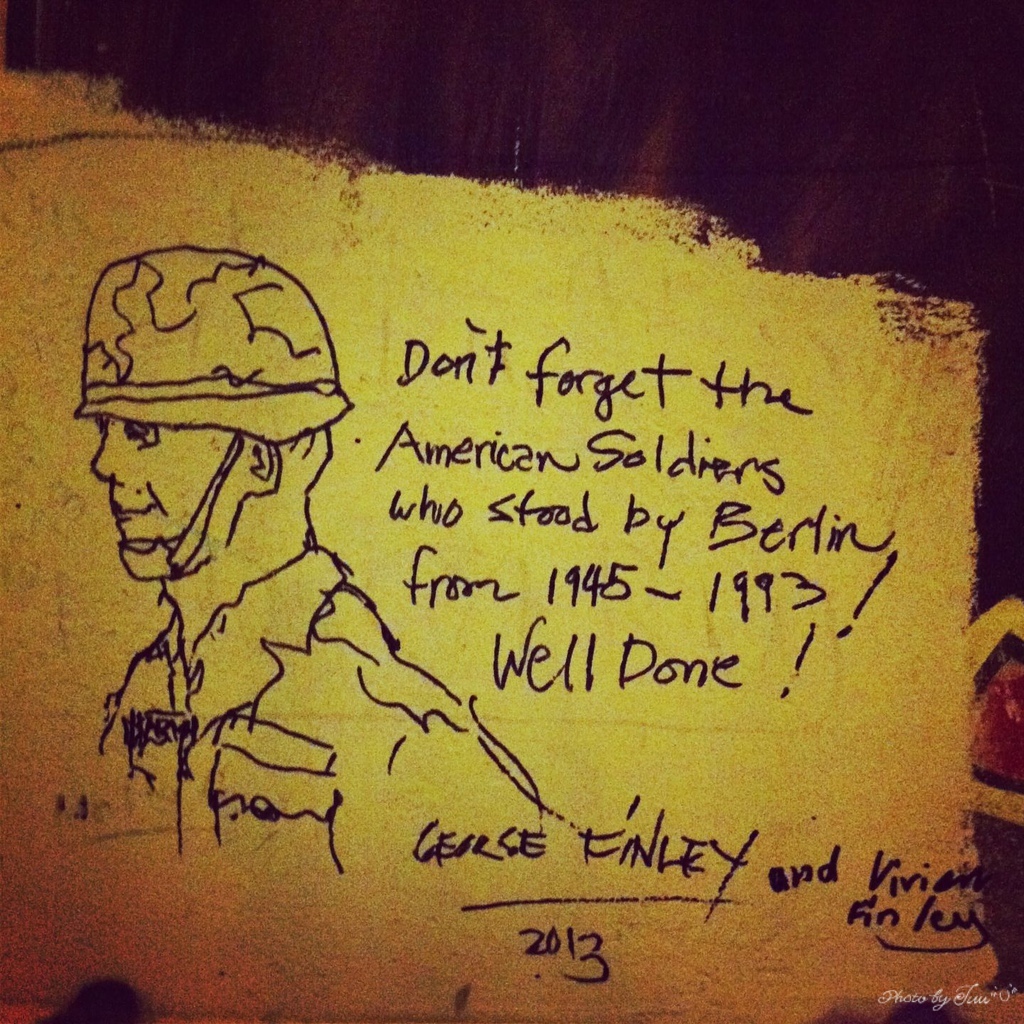 Don't forget the
American Soldiers
who stood by Berlin
from 1945 - 1993!
Well Done!
GEORGE FINLEY and Vivian
Finley
2013
Photo by